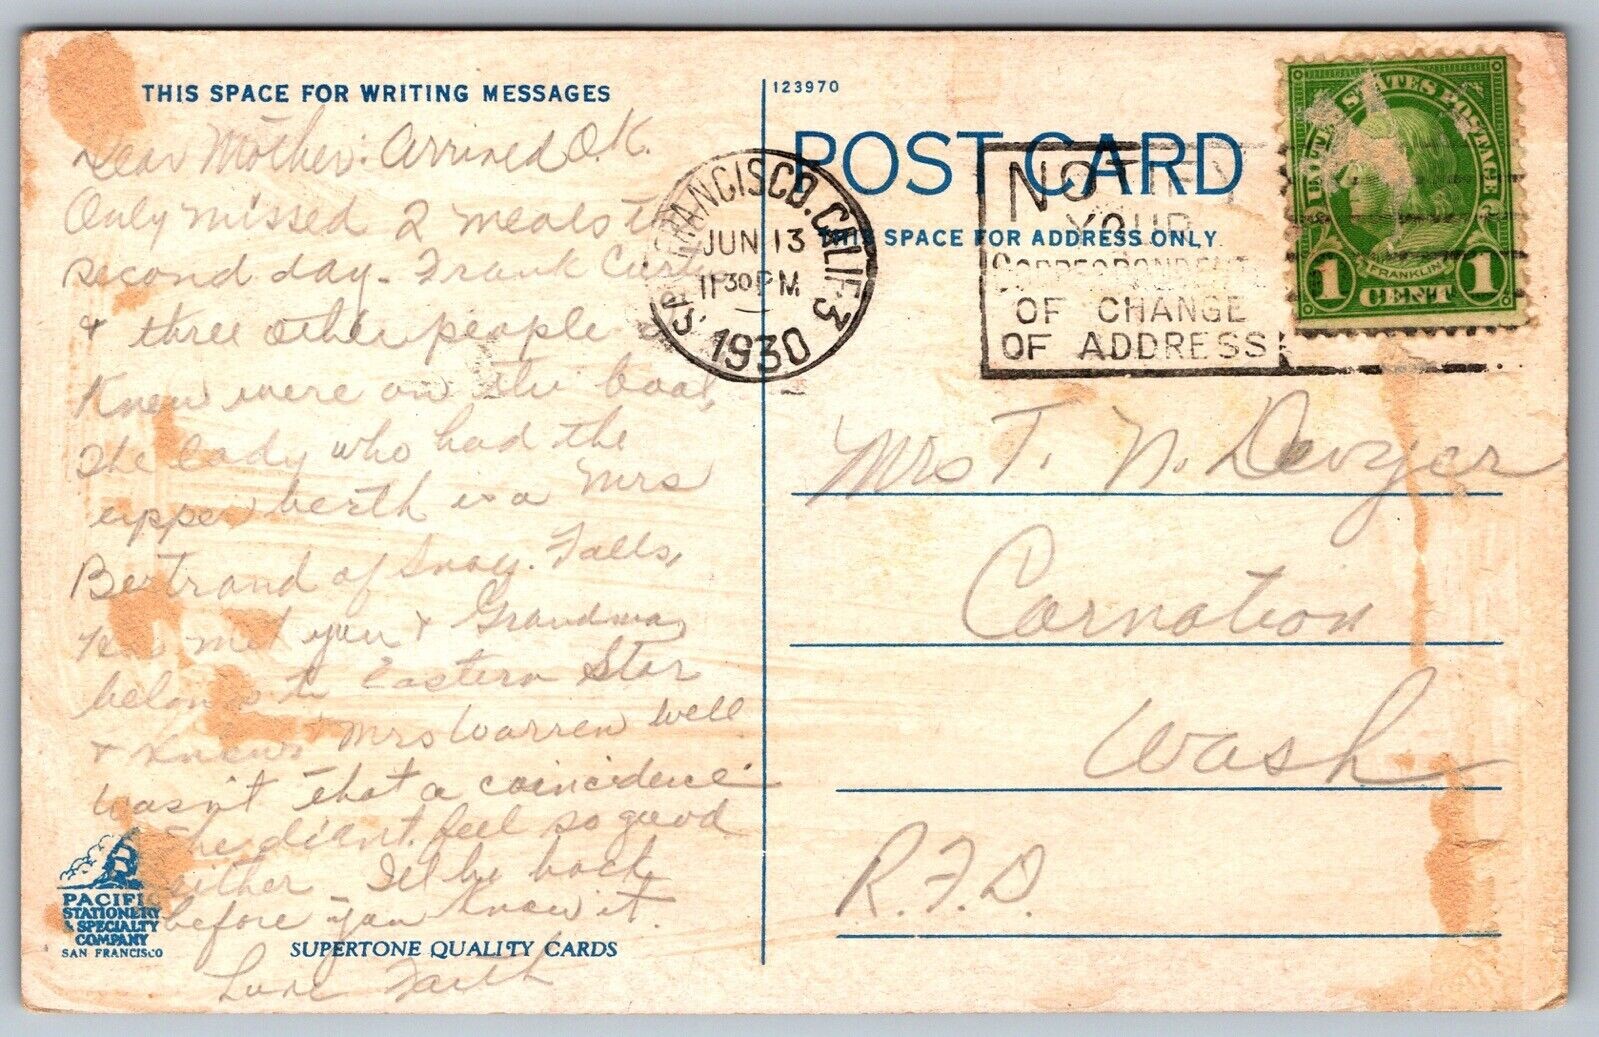 THIS SPACE FOR WRITING MESSAGES
Dear Mother: Arrived O.K.
Only missed 2 meals
second day. Frank
& three other people
Knew were on the boat,
The lady who had the
upper berth is a Mrs
Bertrand of Snoq. Falls,
met you & Grandma,
belongs to Eastern Star
& knows Mrs Warren well
wasn't that a coincidence
She didn't feel so good
either. I'll be back
before you know it.
Love Faith
PACIFIC
STATIONERY
& SPECIALTY
COMPANY
SAN FRANCISCO
SUPERTONE QUALITY CARDS
123970
POST CARD
THIS SPACE FOR ADDRESS ONLY
SAN FRANCISCO, CALIF. 3
JUN 13
11 30 PM
1930
NOTIFY
YOUR
CORRESPONDENTS
OF CHANGE
OF ADDRESS
UNITED STATES POSTAGE
FRANKLIN
1 CENT 1
Mrs T. N.
Carnation
Wash
R.F.D.